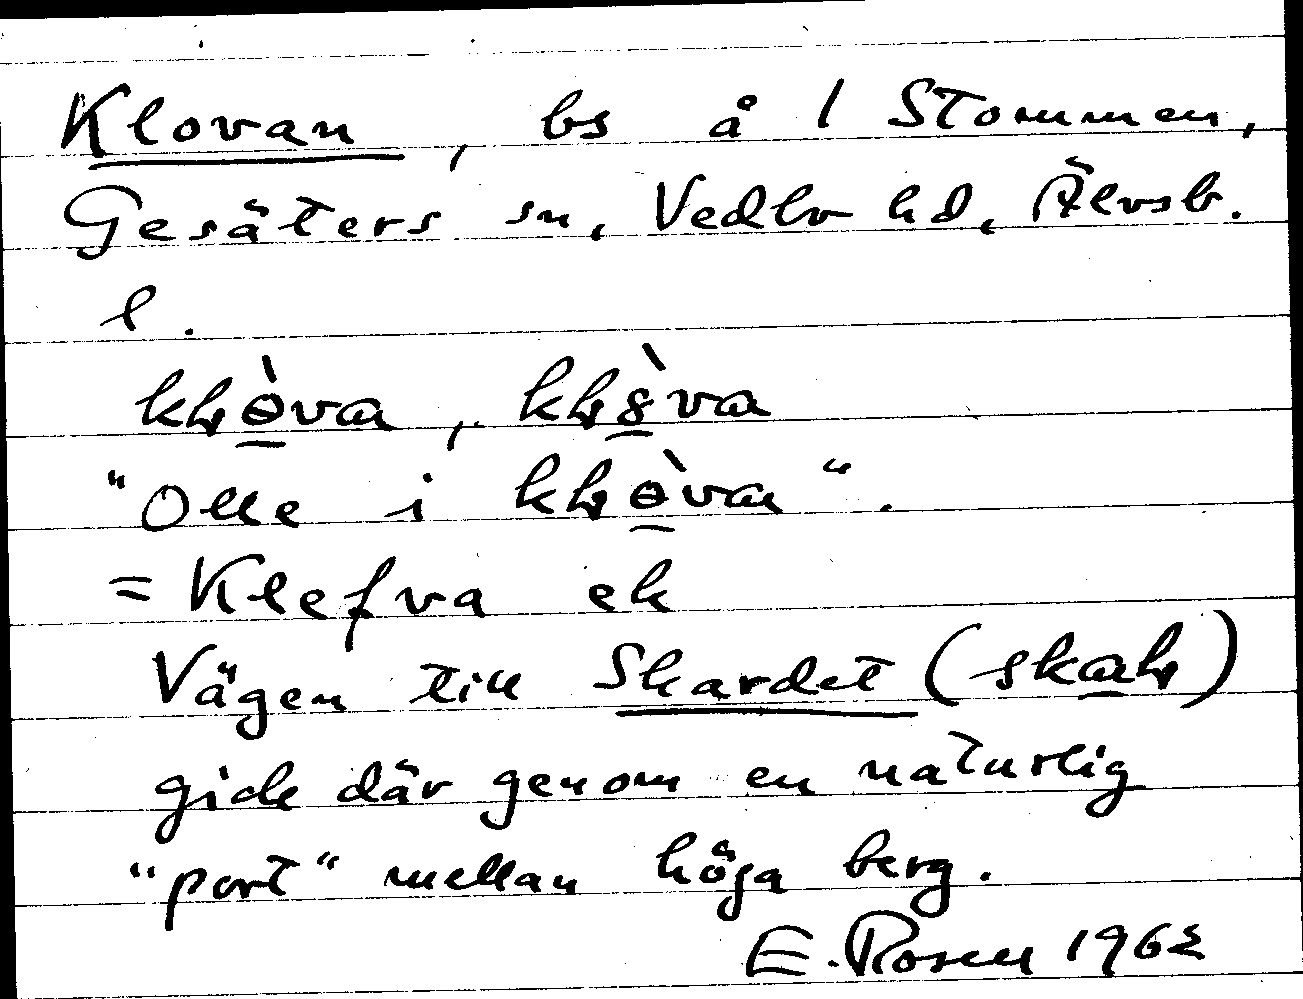 Klovan, bs å 1 Stommen,
Gesäters sn, Vedbo hd, Älvsb.
l.
"Olle i
= Klefva ek
Vägen till Skardet (
gick där genom en naturlig
"port" mellan höga berg.
E. Rosen 1962